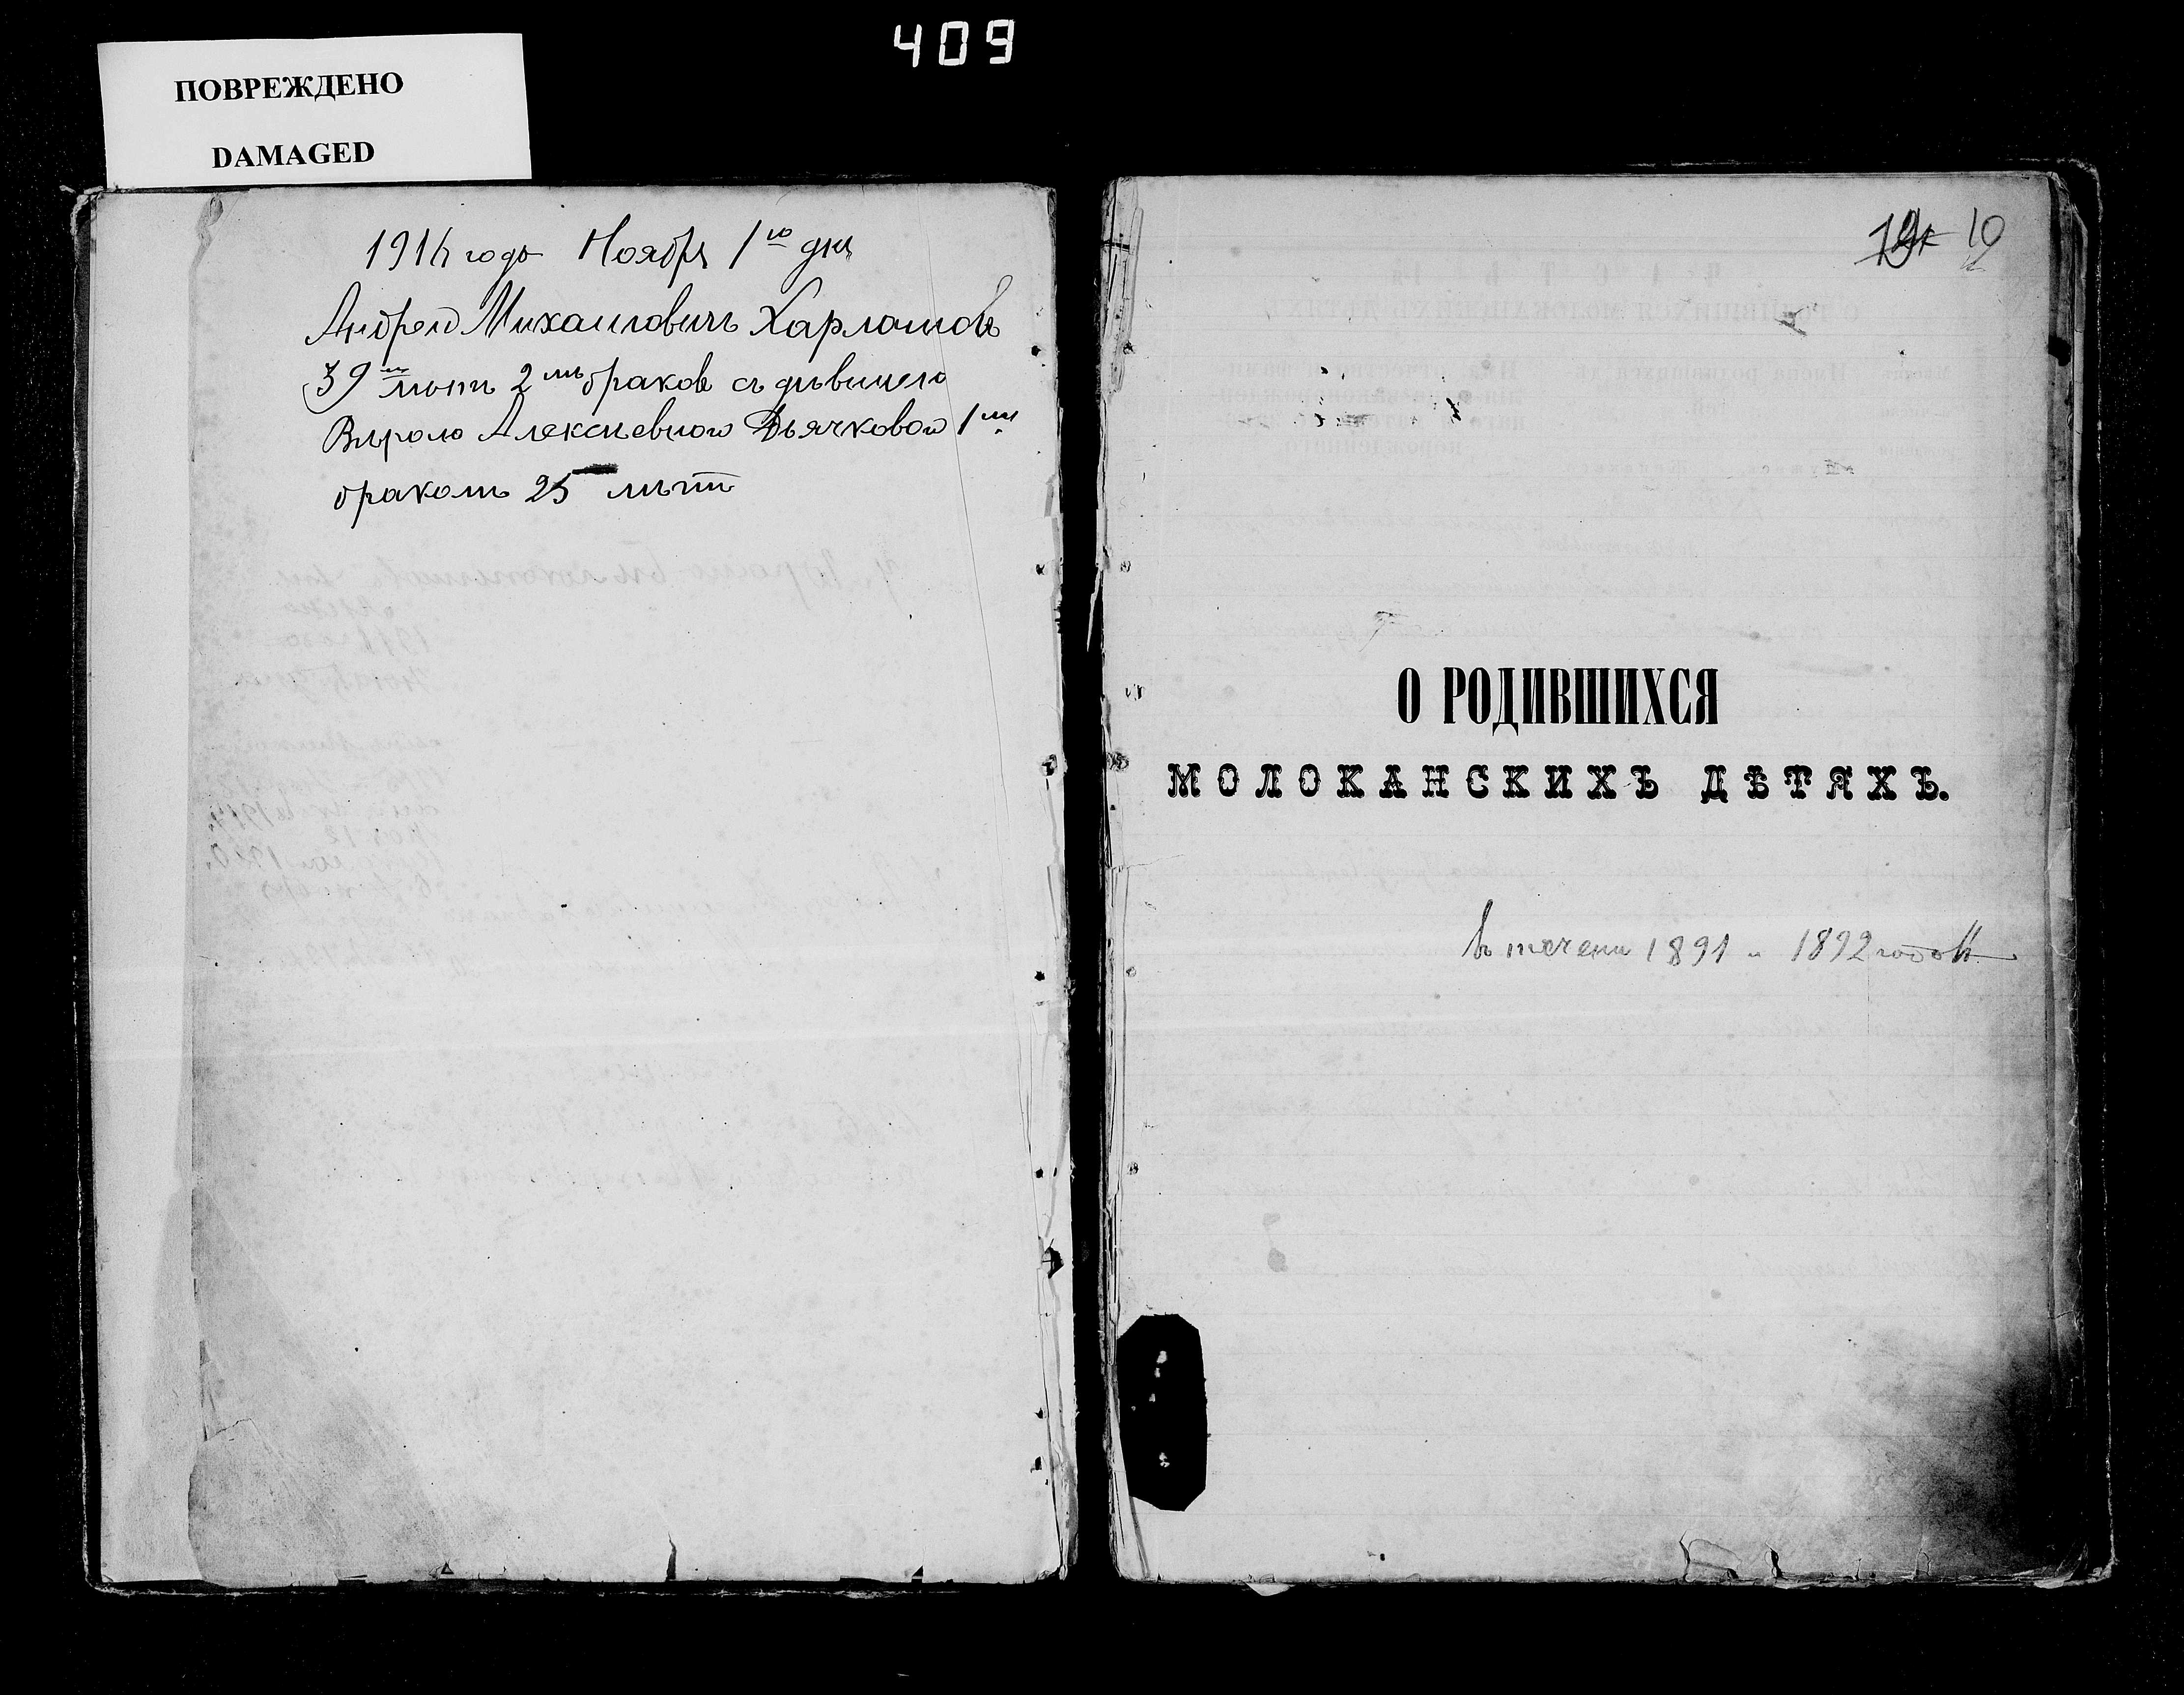 409
ПОВРЕЖДЕНО
DAMAGED
1914 годъ Ноября 1го дня
Андрей Михаиловичъ Харламовъ
39 лѣтъ 2мъ бракомъ съ дѣвицею
Вѣрою Алексѣевною Дьячковой 1мъ
бракомъ 25 лѣтъ
10
О РОДИВШИХСЯ
МОЛОКАНСКИХЪ ДѢТЯХЪ.
въ течени 1891 и 1892 годовъ